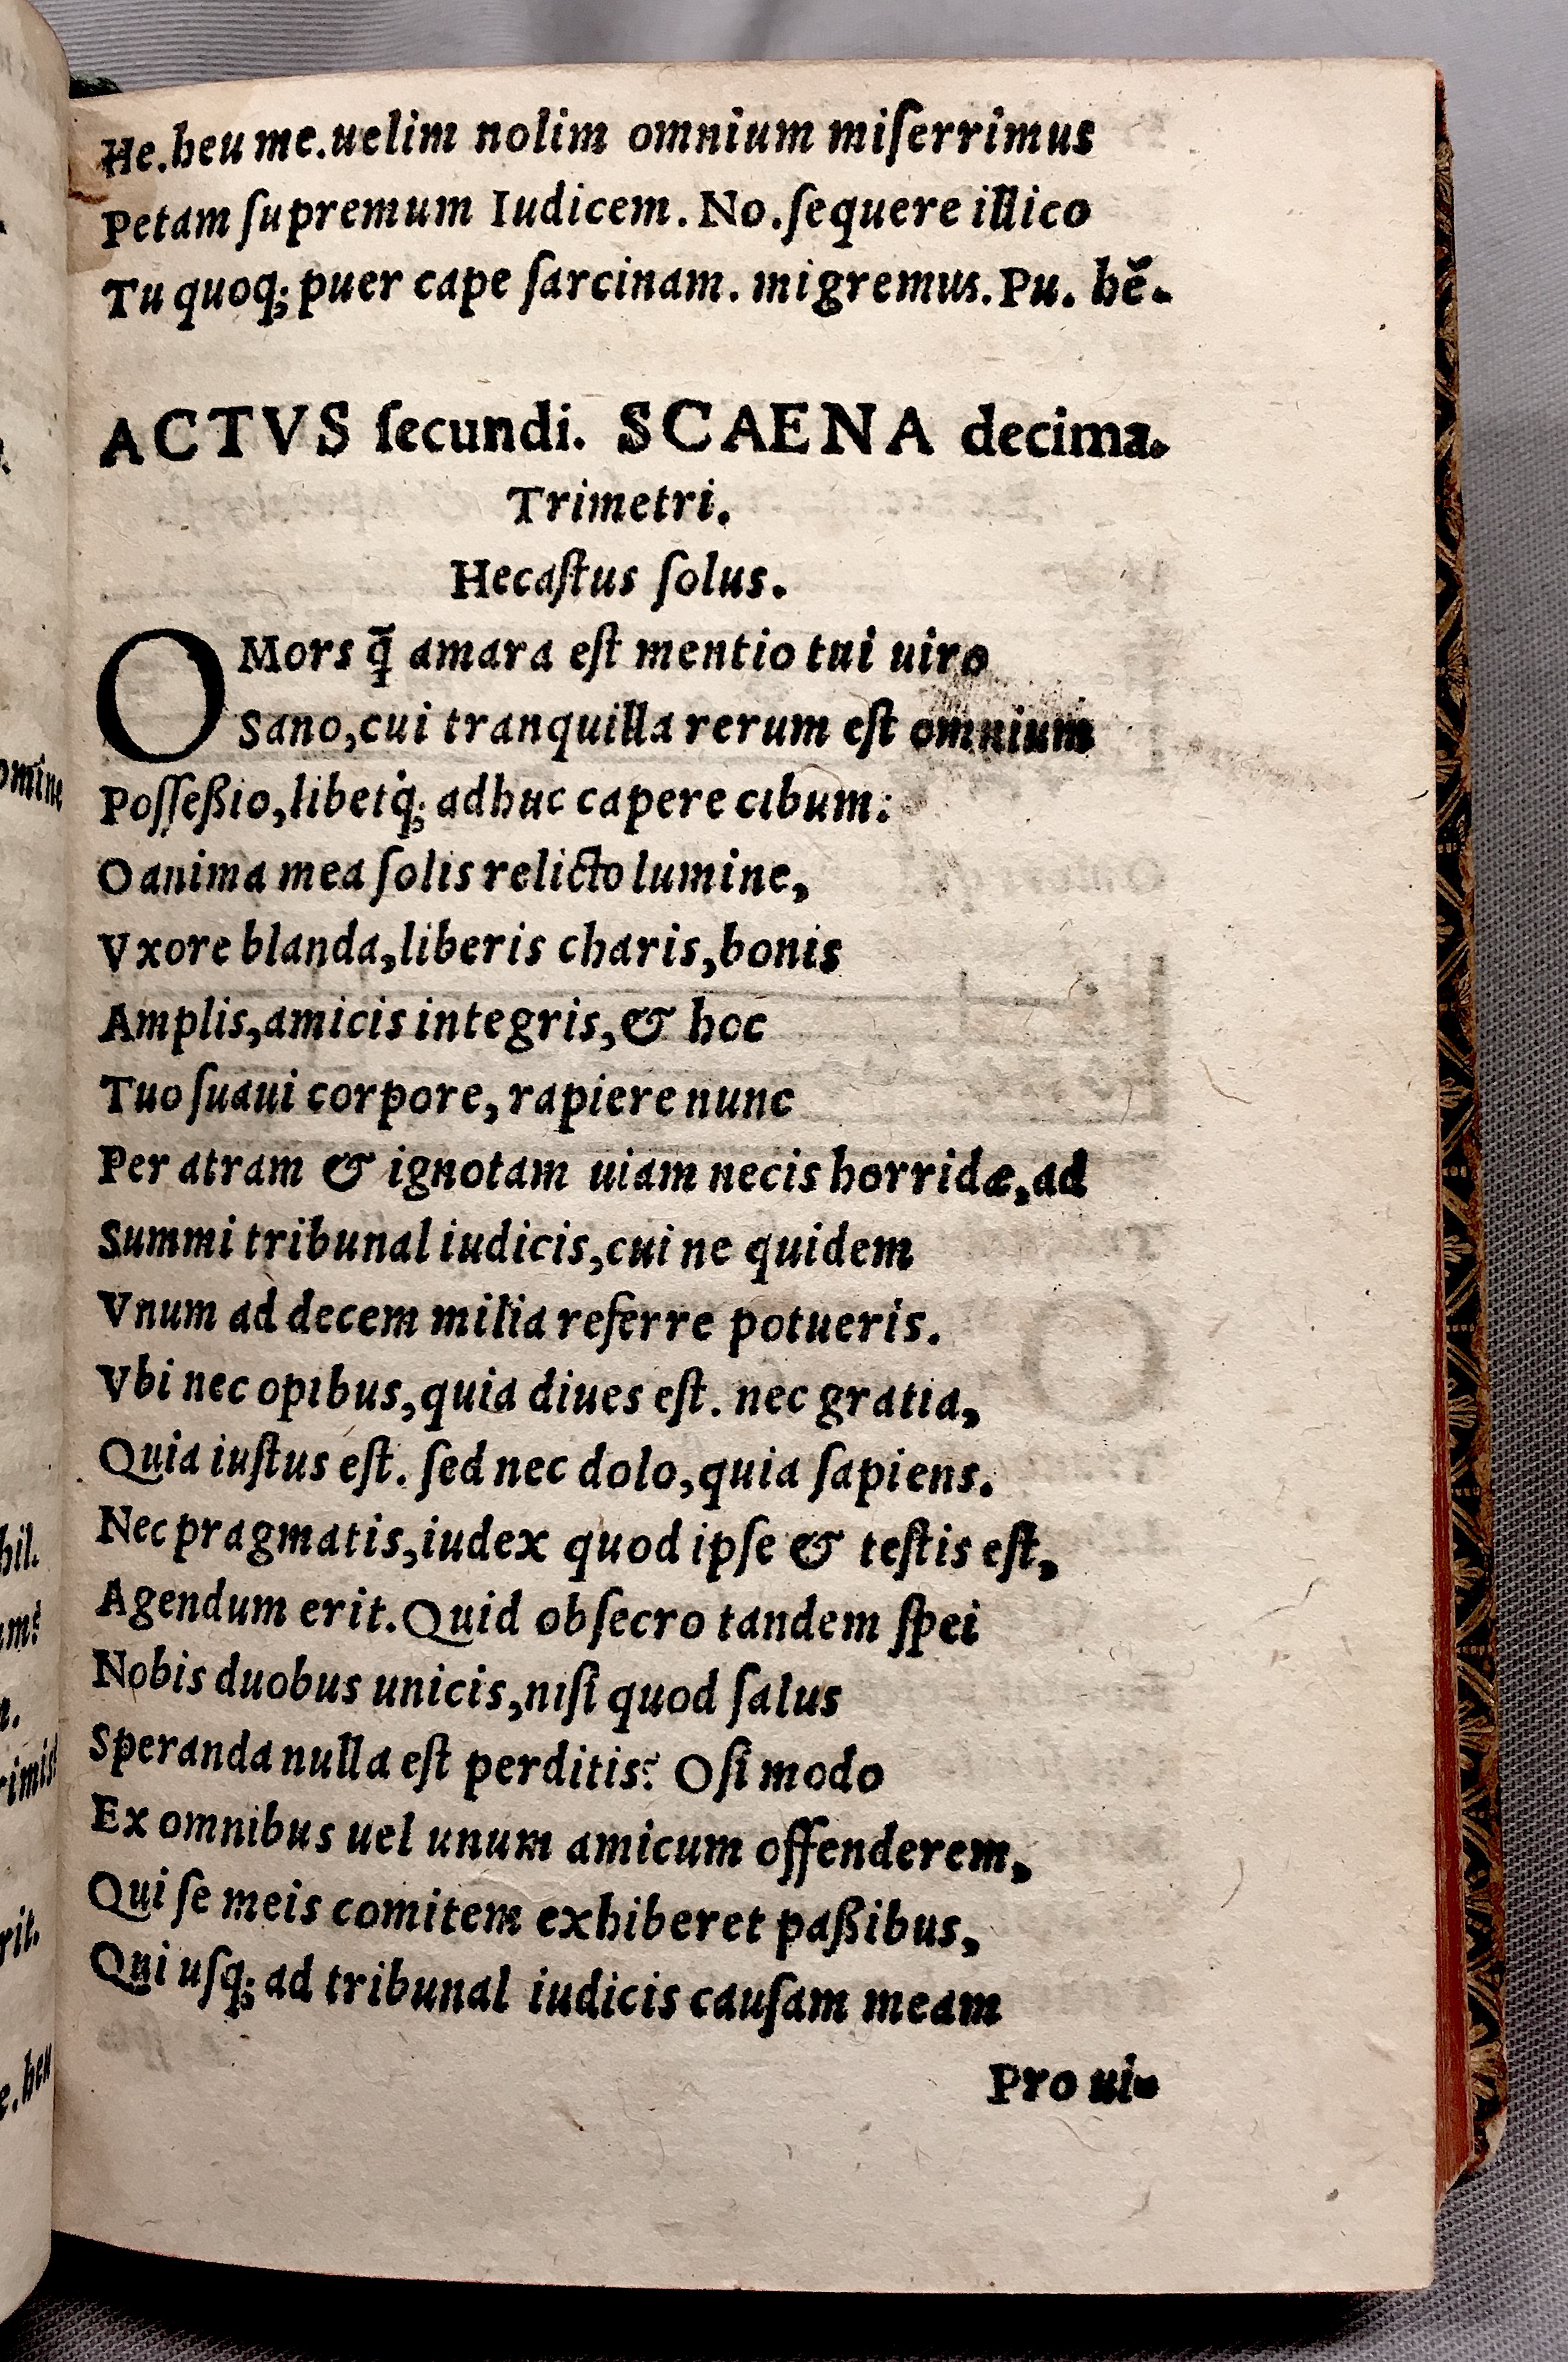 He.heu me.uelim nolim omnium miſerrimus
Petam ſupremum Iudicem. No.ſequere illico
Tu quoq; puer cape ſarcinam. migremus.Pu. hē.
ACTVS ſecundi. SCAENA decima.
Trimetri.
Hecaſtus ſolus.
O Mors q̄ amara eſt mentio tui uiro
Sano,cui tranquilla rerum eſt omnium
Poſſeßio,libetq́; adhuc capere cibum:
O anima mea ſolis relicto lumine,
Vxore blanda,liberis charis,bonis
Amplis,amicis integris,& hoc
Tuo ſuaui corpore, rapiere nunc
Per atram & ignotam uiam necis horridæ,ad
Summi tribunal iudicis,cui ne quidem
Vnum ad decem milia referre potueris.
Vbi nec opibus,quia diues eſt. nec gratia,
Quia iuſtus eſt. ſed nec dolo,quia ſapiens.
Nec pragmatis,iudex quod ipſe & teſtis eſt,
Agendum erit.Quid obſecro tandem ſpei
Nobis duobus unicis,niſi quod ſalus
Speranda nulla eſt perditis? O ſi modo
Ex omnibus uel unum amicum offenderem,
Qui ſe meis comitem exhiberet paßibus,
Qui uſq; ad tribunal iudicis cauſam meam
Pro ui-
omine
hil.
rit.
e.heu